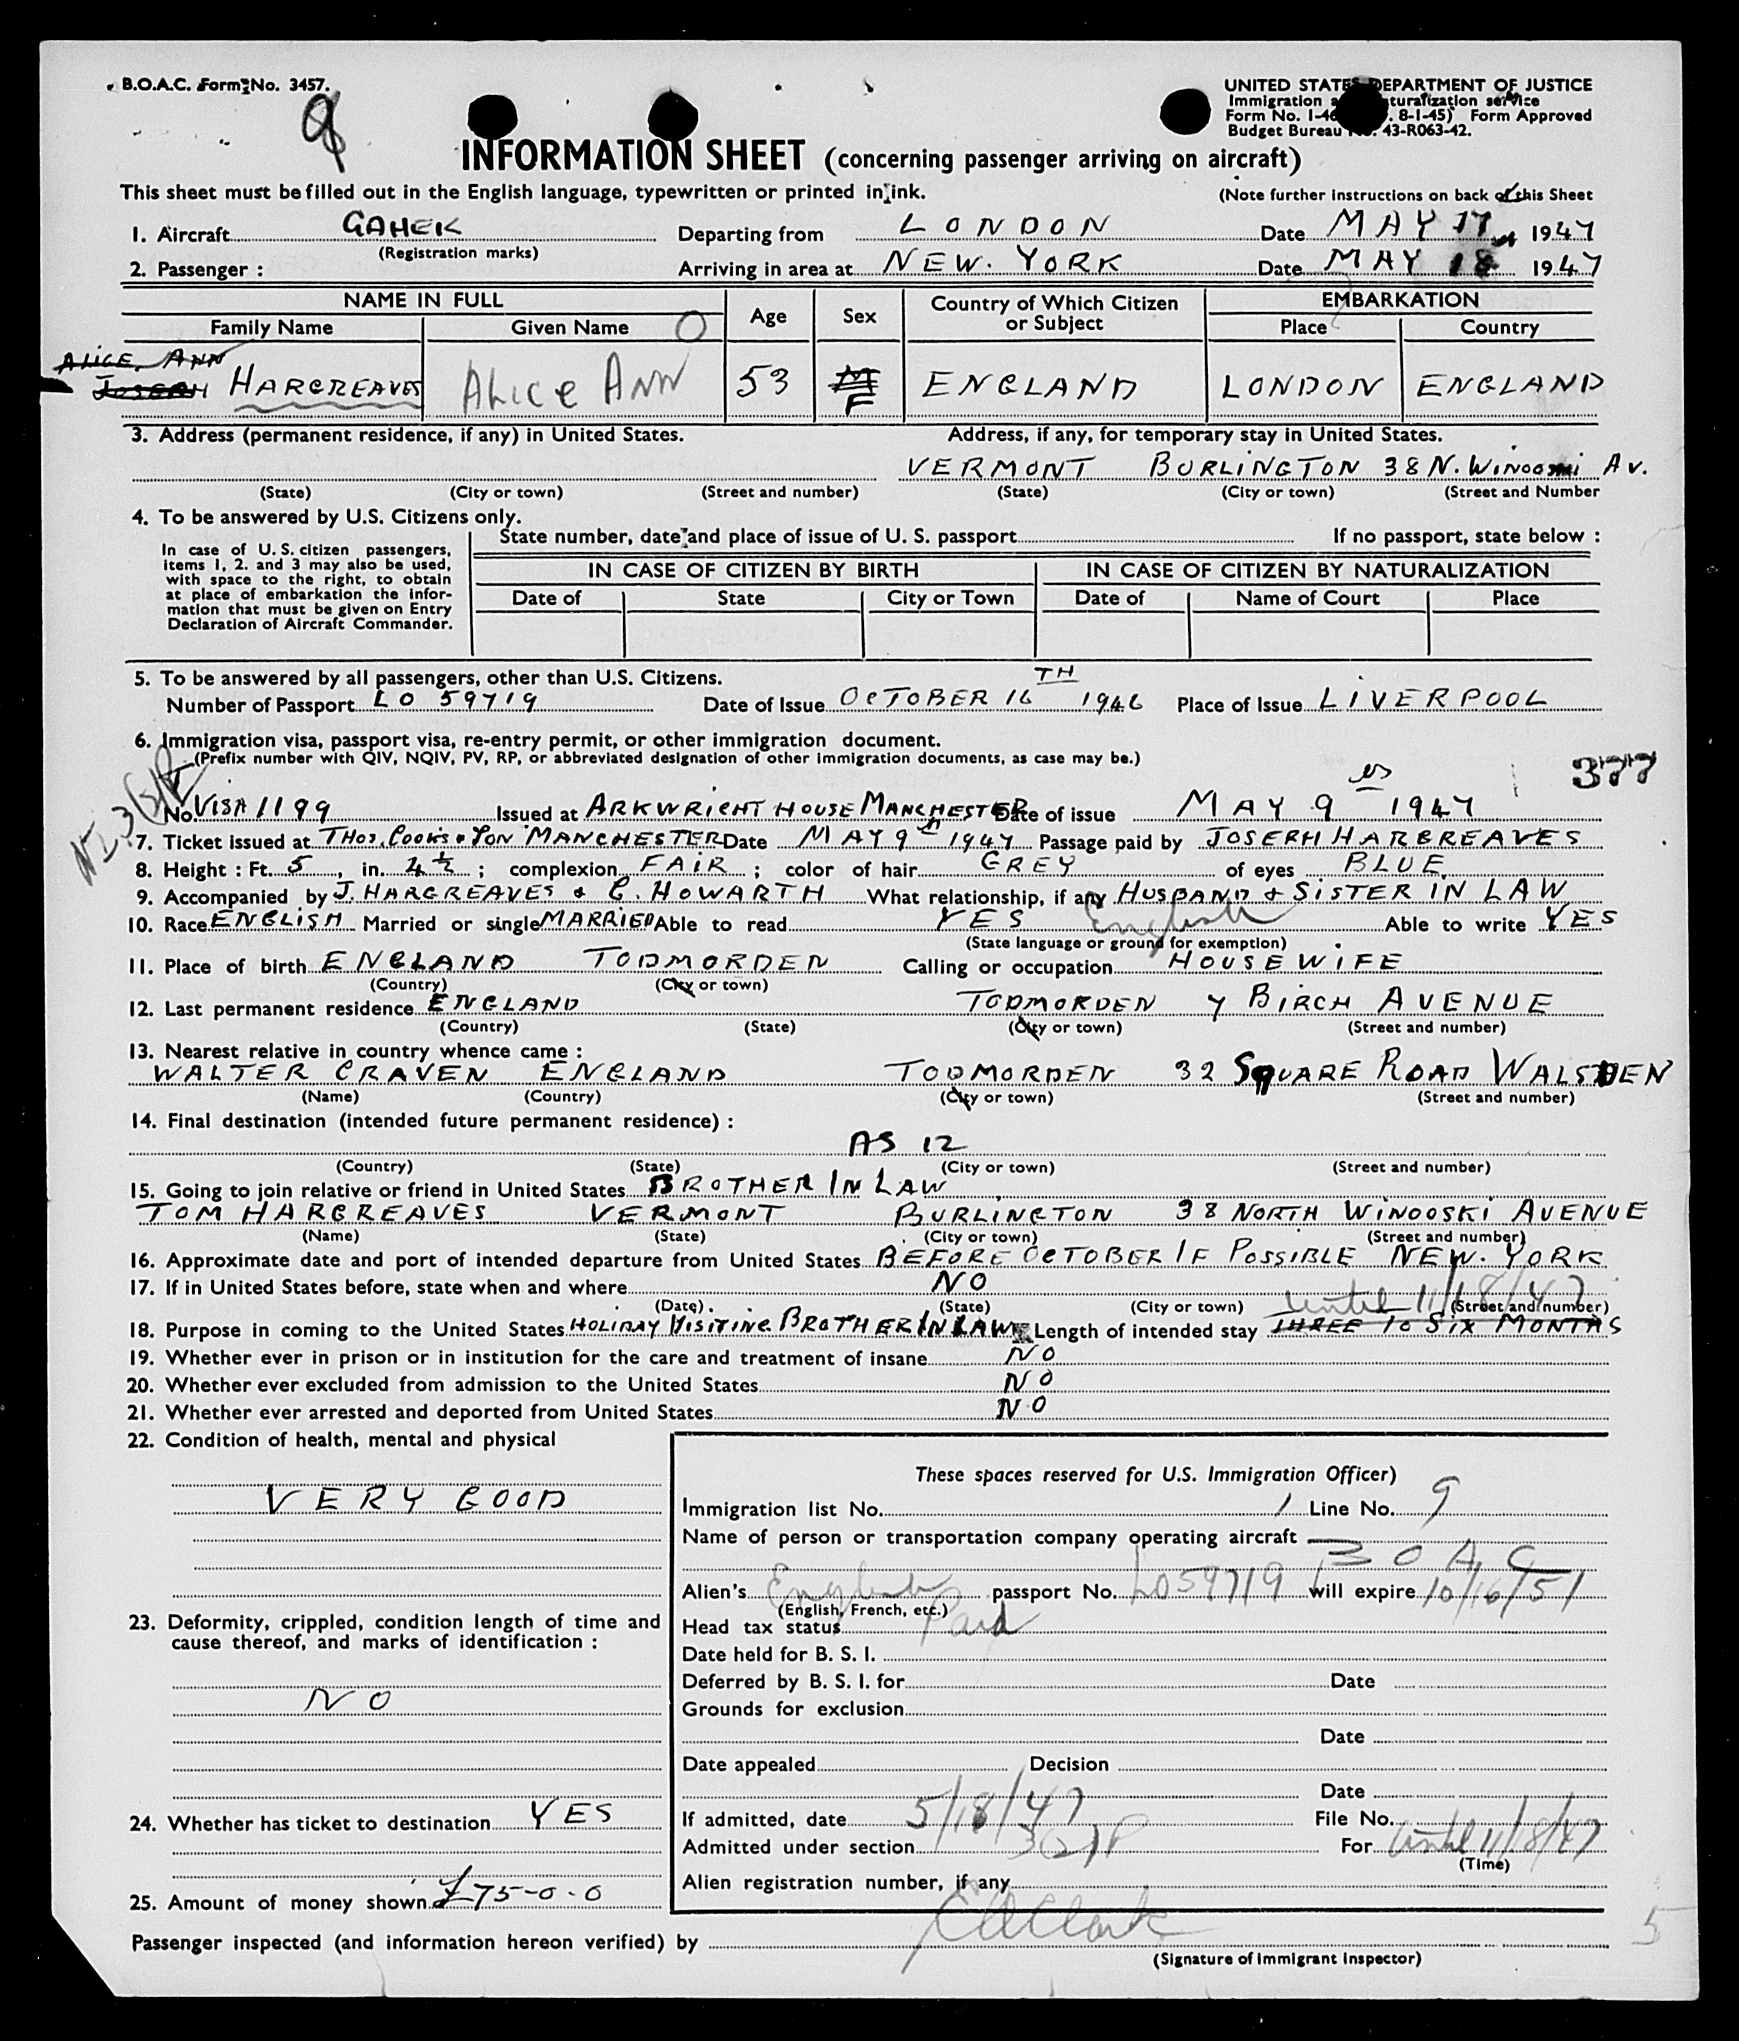 B.O.A.C. Form No. 3457.
UNITED STATES DEPARTMENT OF JUSTICE
Immigration a turalization service
Form No. I-46 . 8-1-45) Form Approved
Budget Bureau No. 43-R063-42.
9
INFORMATION SHEET (concerning passenger arriving on aircraft)
This sheet must be filled out in the English language, typewritten or printed in ink. (Note further instructions on back of this Sheet
1. Aircraft GAHEK Departing from LONDON Date MAY 17 1947
(Registration marks)
2. Passenger : Arriving in area at NEW. YORK Date MAY 18 1947
NAME IN FULL Age Sex Country of Which Citizen or Subject EMBARKATION
Family Name Given Name Place Country
ALICE. ANN
JOSEPH HARGREAVES ALICE ANN 53 M F ENGLAND LONDON ENGLAND
3. Address (permanent residence, if any) in United States. Address, if any, for temporary stay in United States.
VERMONT BURLINGTON 38 N. WINOOSKI AV.
(State) (City or town) (Street and number) (State) (City or town) (Street and Number
4. To be answered by U.S. Citizens only.
State number, date and place of issue of U. S. passport If no passport, state below :
In case of U. S. citizen passengers,
items 1, 2. and 3 may also be used,
with space to the right, to obtain
at place of embarkation the infor-
mation that must be given on Entry
Declaration of Aircraft Commander.
IN CASE OF CITIZEN BY BIRTH IN CASE OF CITIZEN BY NATURALIZATION
Date of State City or Town Date of Name of Court Place
5. To be answered by all passengers, other than U.S. Citizens.
Number of Passport LO 59719 Date of Issue OCTOBER 16TH 1946 Place of Issue LIVERPOOL
6. Immigration visa, passport visa, re-entry permit, or other immigration document.
(Prefix number with QIV, NQIV, PV, RP, or abbreviated designation of other immigration documents, as case may be.)
377
No. VISA 1199 Issued at ARKWRIGHT HOUSE MANCHESTER Date of issue MAY 9 1947
7. Ticket issued at THOS. COOKS & SON MANCHESTER Date MAY 9th 1947 Passage paid by JOSEPH HARGREAVES
8. Height : Ft. 5, in. 4½ ; complexion FAIR ; color of hair GREY of eyes BLUE.
9. Accompanied by J. HARGREAVES & C. HOWARTH What relationship, if any HUSBAND & SISTER IN LAW
10. Race ENGLISH Married or single MARRIED Able to read YES English Able to write YES
(State language or ground for exemption)
11. Place of birth ENGLAND TODMORDEN Calling or occupation HOUSEWIFE
(Country) (City or town)
12. Last permanent residence ENGLAND TODMORDEN 7 BIRCH AVENUE
(Country) (State) (City or town) (Street and number)
13. Nearest relative in country whence came :
WALTER CRAVEN ENGLAND TODMORDEN 32 SQUARE ROAD WALSDEN
(Name) (Country) (City or town) (Street and number)
14. Final destination (intended future permanent residence) :
AS 12
(Country) (State) (City or town) (Street and number)
15. Going to join relative or friend in United States BROTHER IN LAW
TOM HARGREAVES VERMONT BURLINGTON 38 NORTH WINOOSKI AVENUE
(Name) (State) (City or town) (Street and number)
16. Approximate date and port of intended departure from United States BEFORE OCTOBER IF POSSIBLE NEW. YORK
17. If in United States before, state when and where NO
(Date) (State) (City or town) (Street and number)
until 11/18/47
18. Purpose in coming to the United States HOLIDAY VISITING BROTHER IN LAW Length of intended stay THREE TO SIX MONTHS
19. Whether ever in prison or in institution for the care and treatment of insane NO
20. Whether ever excluded from admission to the United States NO
21. Whether ever arrested and deported from United States NO
22. Condition of health, mental and physical
VERY GOOD
23. Deformity, crippled, condition length of time and
cause thereof, and marks of identification :
NO
24. Whether has ticket to destination YES
25. Amount of money shown £75-0-0
These spaces reserved for U.S. Immigration Officer)
Immigration list No. 1 Line No. 9
Name of person or transportation company operating aircraft
BOAC
Alien's English passport No. LO59719 will expire 10/16/51
(English, French, etc.)
Head tax status Paid
Date held for B. S. I.
Deferred by B. S. I. for Date
Grounds for exclusion
Date
Date appealed Decision
Date
If admitted, date 5/18/47 File No.
Admitted under section 3(2)P For until 11/18/47
(Time)
Alien registration number, if any
5
Passenger inspected (and information hereon verified) by
(Signature of Immigrant Inspector)